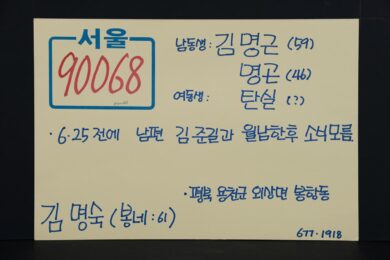 서울
90068
남동생: 김명근 (59)
명곤 (46)
여동생: 탄실 (?)
· 6.25 전에 남편 김준길과 월남한후 소식모름
· 평북 용천군 외상면 봉학동
김명숙 (봉네: 61)
677-1918